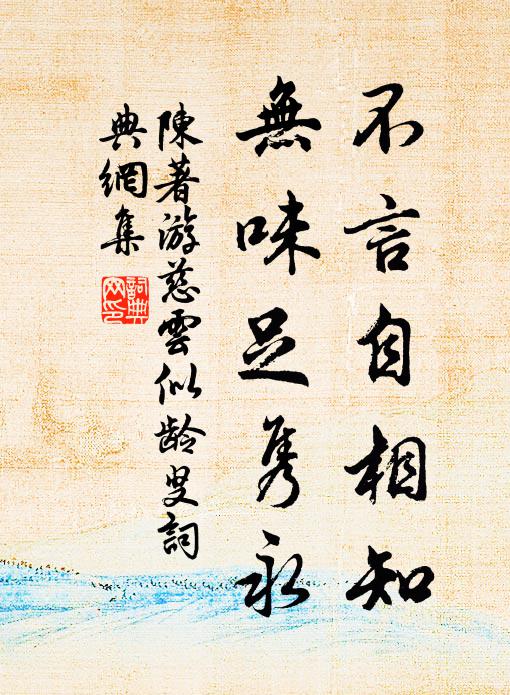 不言自相知
無味足雋永
陳著游慈雲似龄叟詞
典網集
詞典
网印